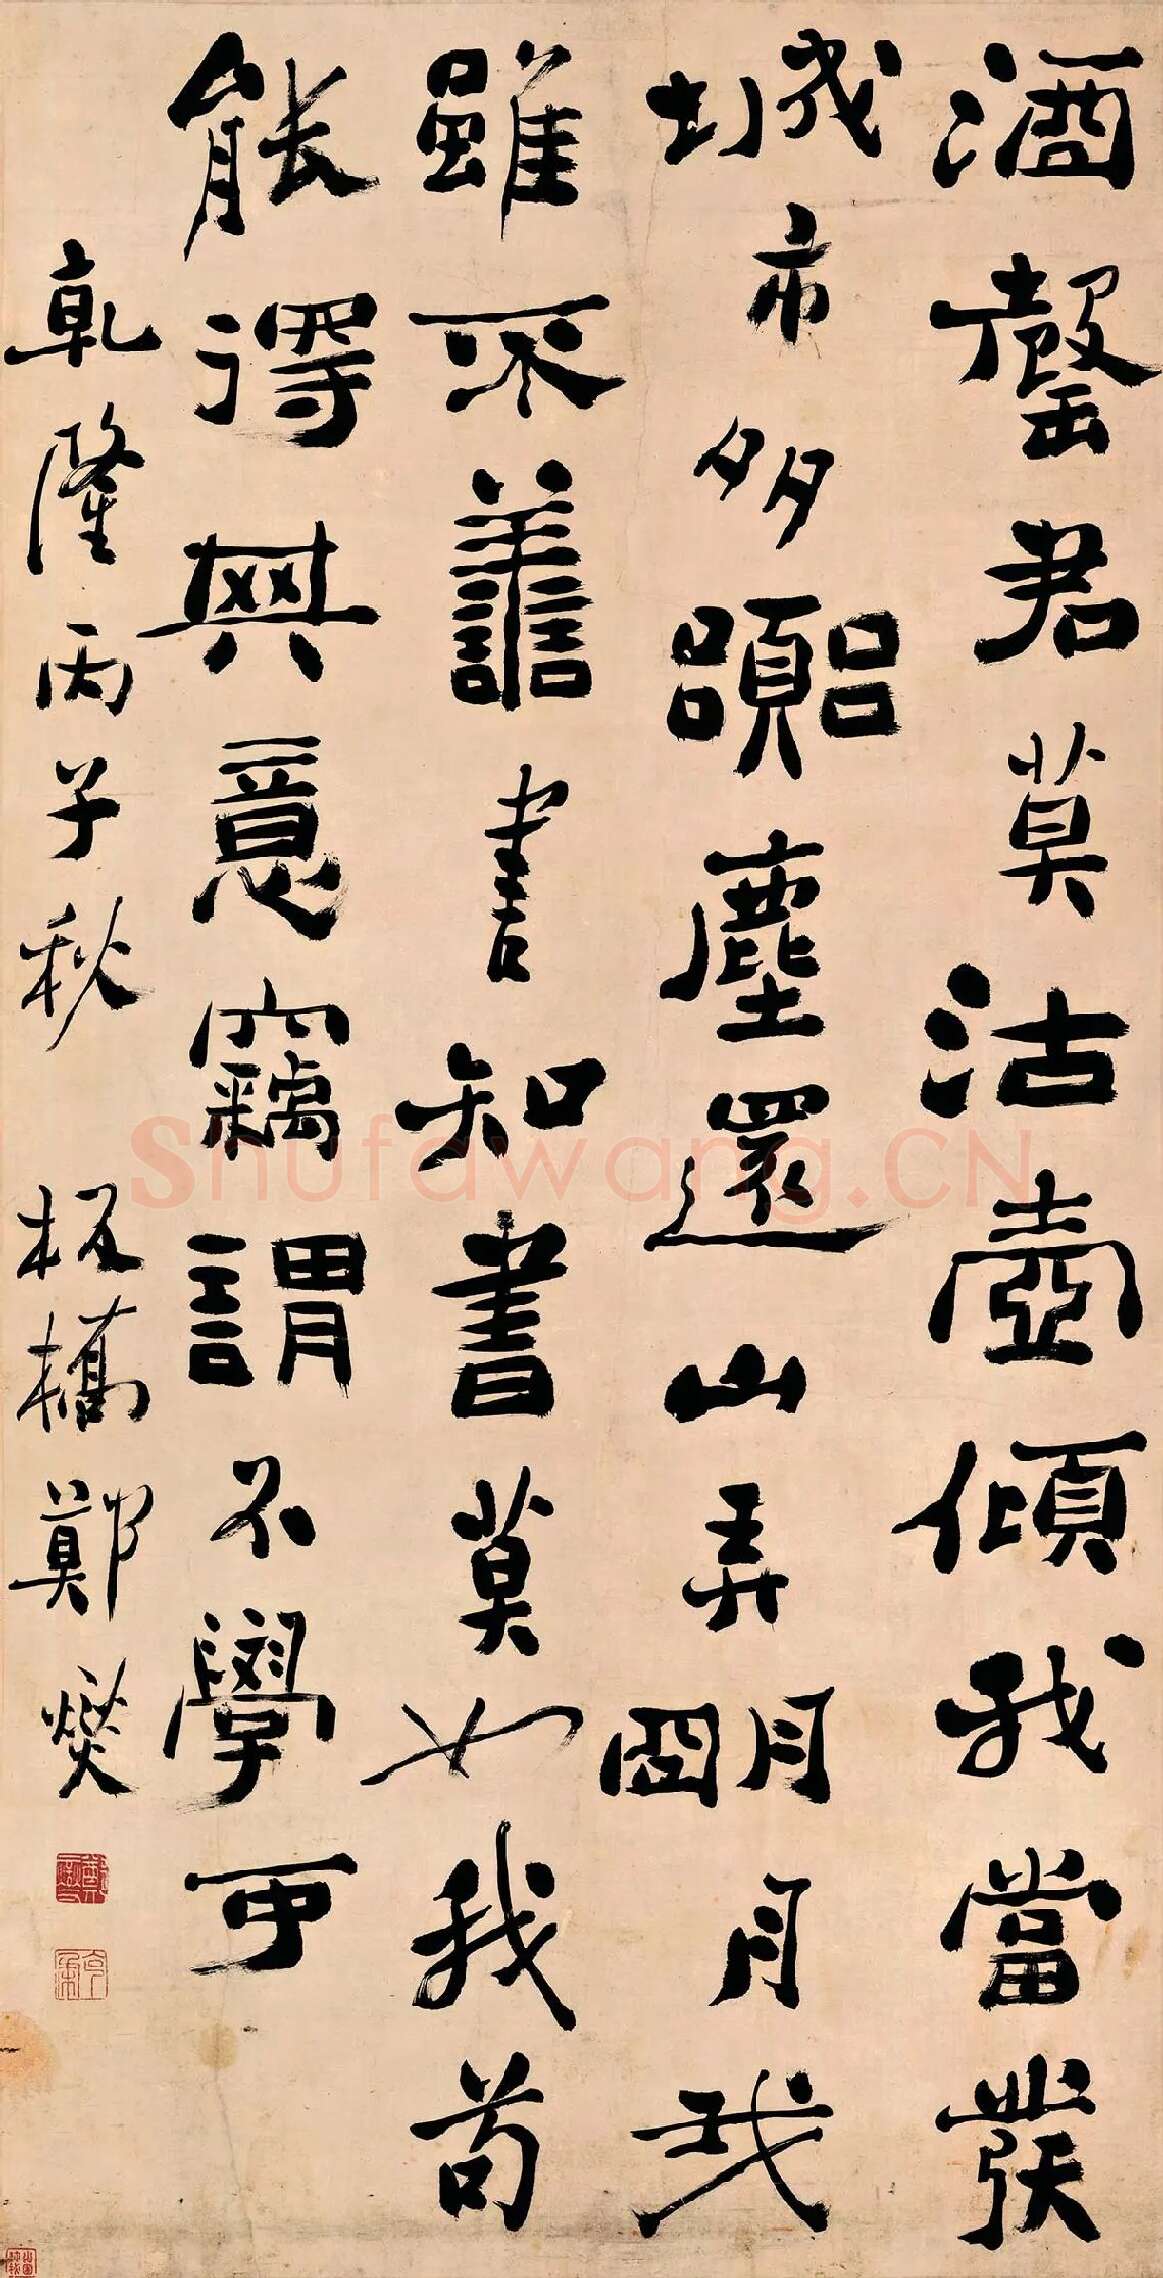 酒罄君莫沽壺傾我當發
城市多嚻塵還山弄明月我
雖不譱書知書莫如我苟
能得其意竊謂不學可
乾隆丙子秋 板橋鄭燮
克柔
Shufawang.CN